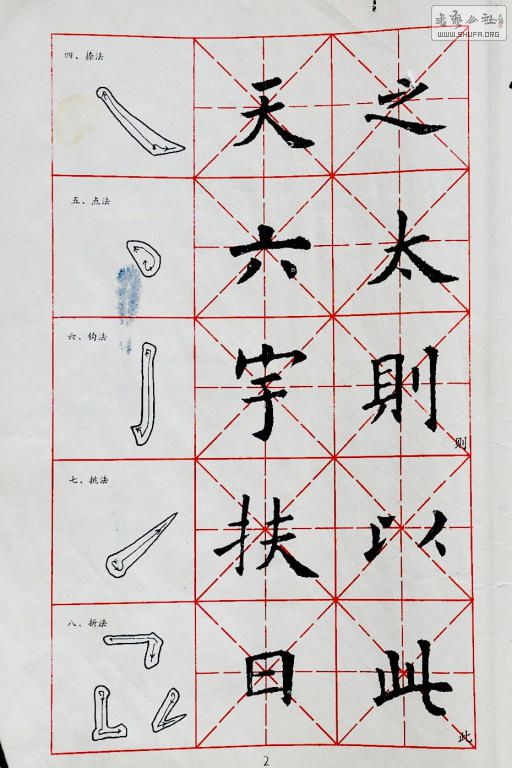 書藝公社
WWW.SHUFA.ORG
四、捺法
天 之
五、点法
六 太
六、钩法
宇 則
则
七、挑法
扶 以
八、折法
日 此
此
2